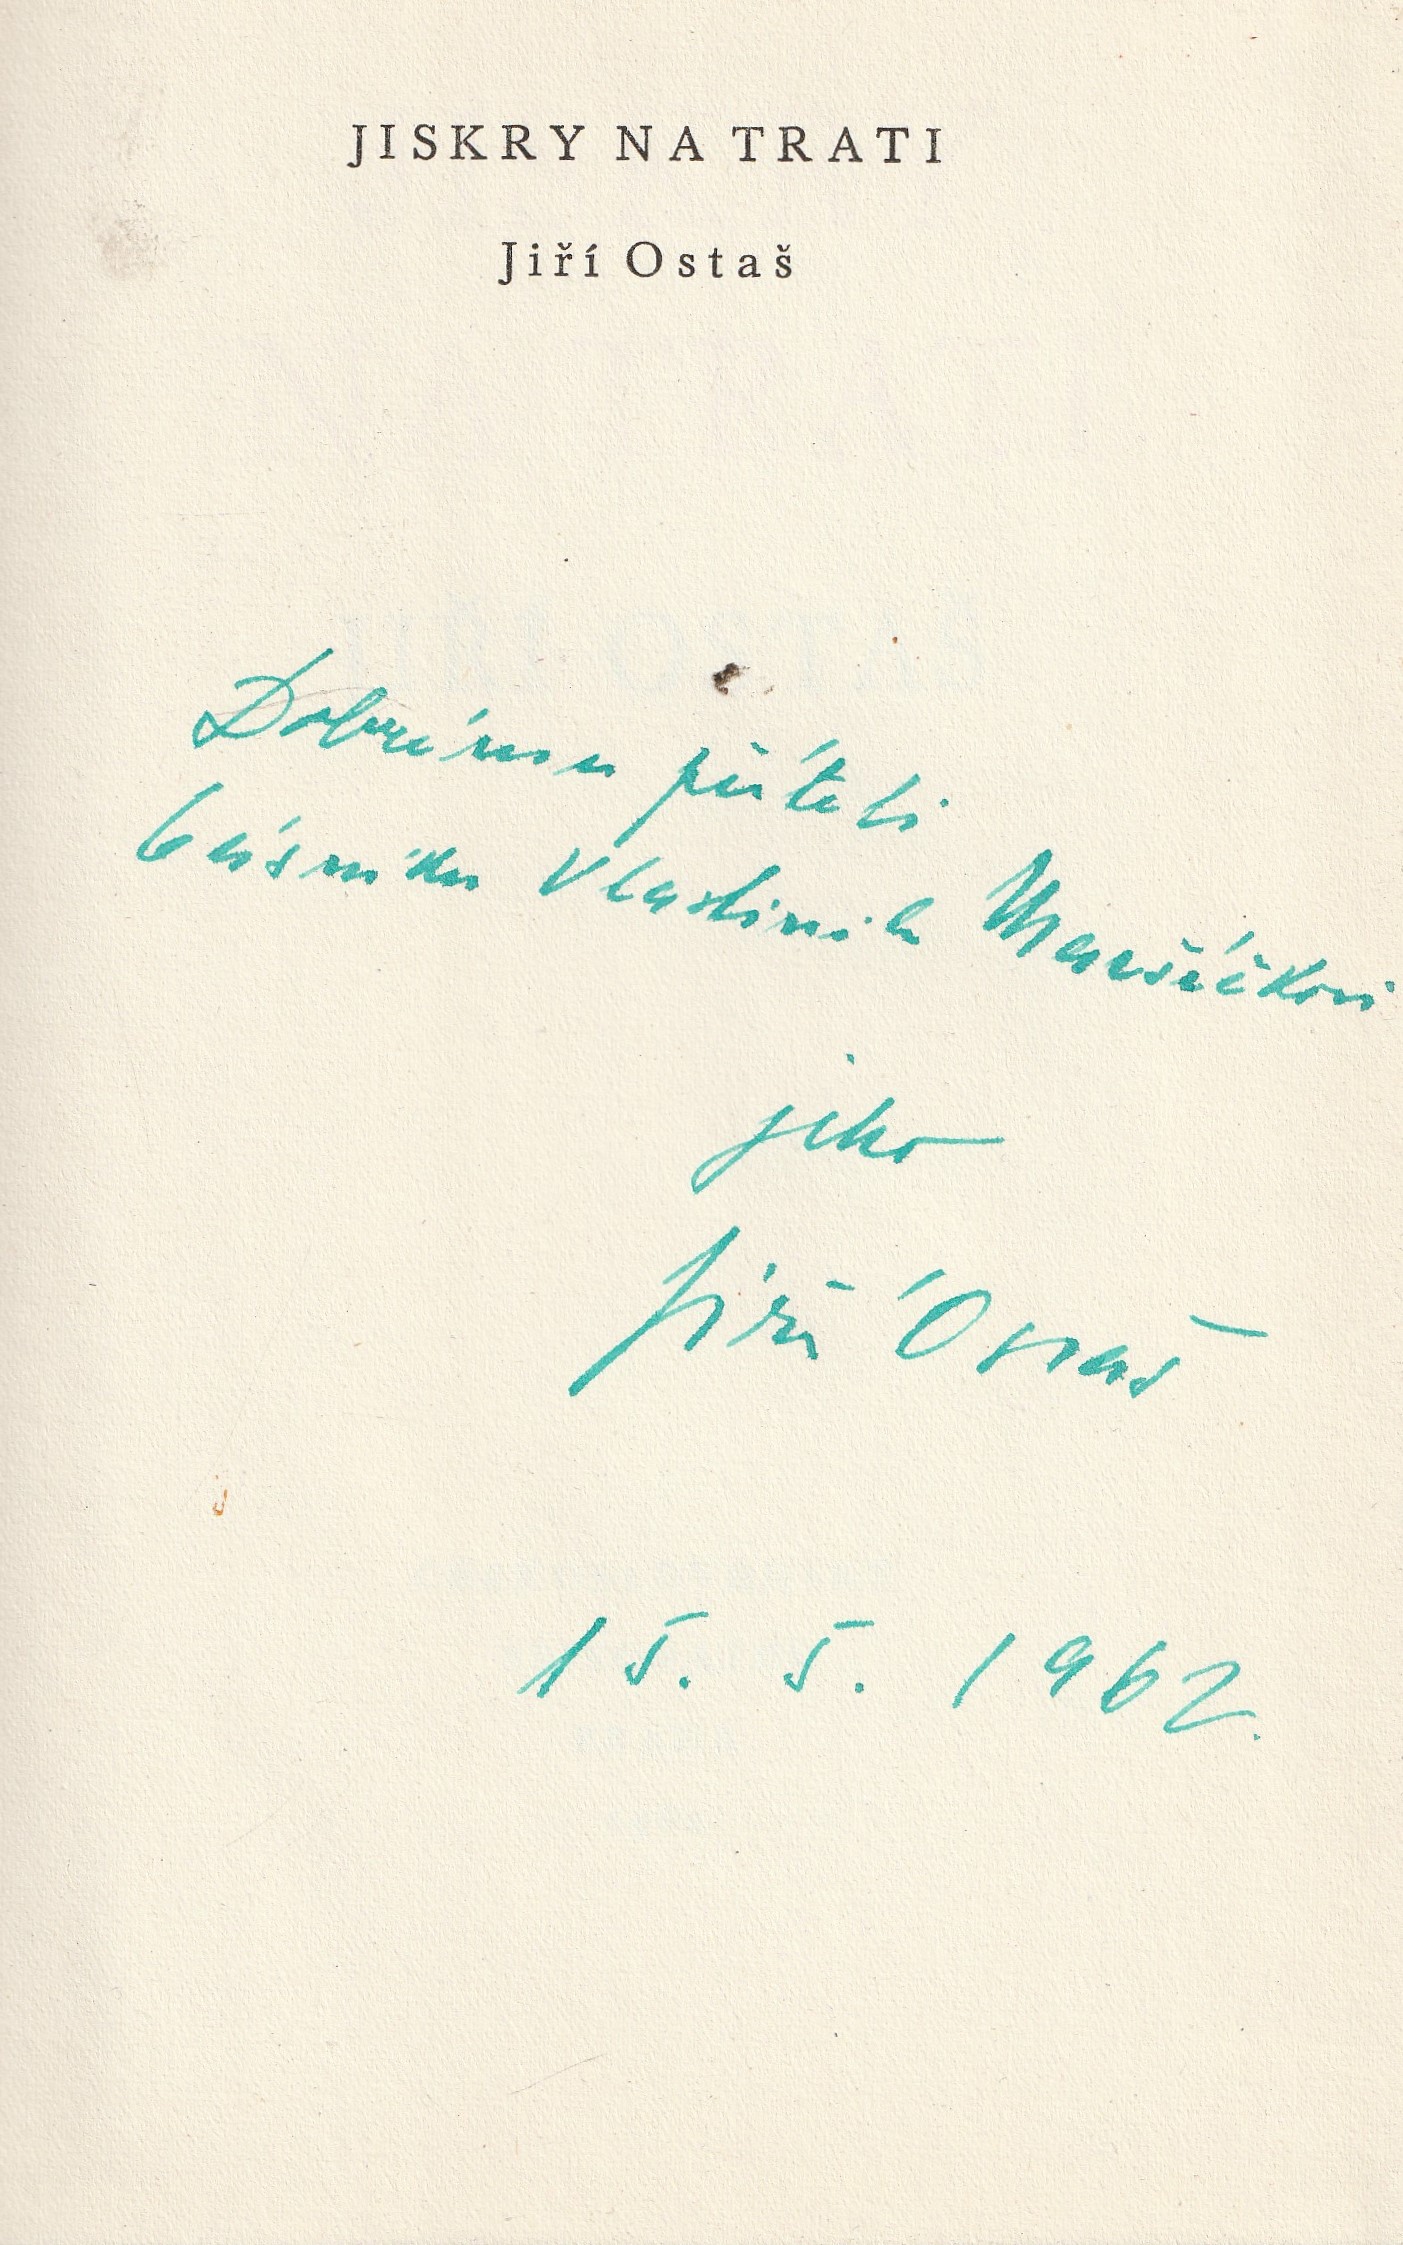 JISKRY NA TRATI
Jiří Ostaš
Dobrému příteli
básníku Vlastimilu Maršíčkovi
jeho
Jiří Ostaš
15. 5. 1962.